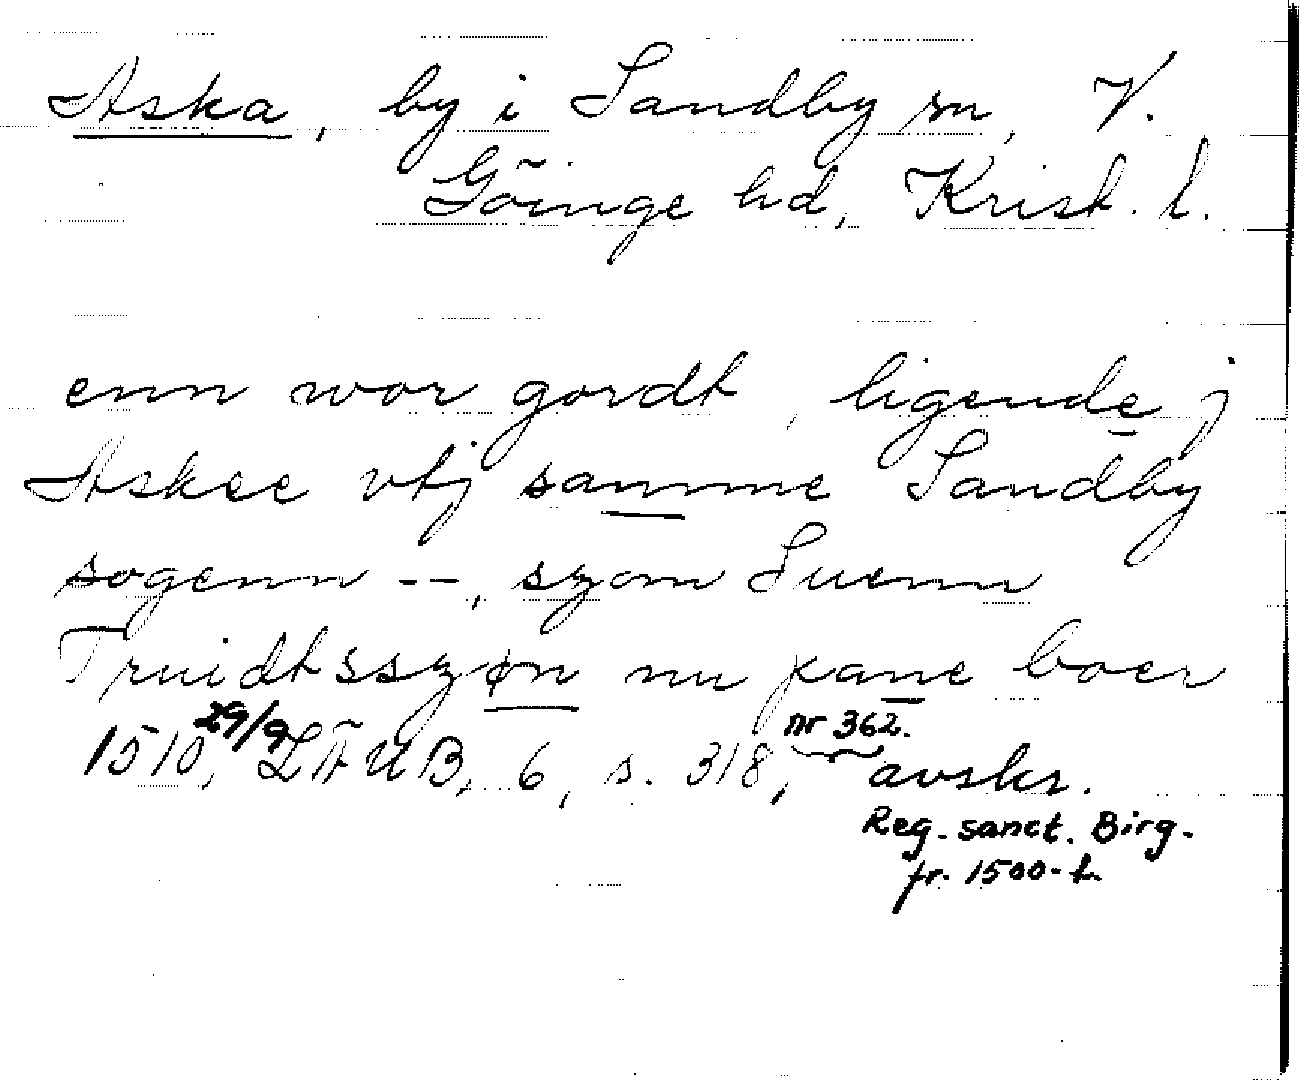 Aska, by i Sandby sn, V.
Göinge hd, Krist. l.
enn wor gordt, ligende j
Askee vtj samme Sandby
sogenn --, szom Suenn
Truidtsszøn nu pane boer
1510 29/9, LÄUB, 6, s. 318, nr 362. avskr.
Reg. sanct. Birg.
fr. 1500-t.